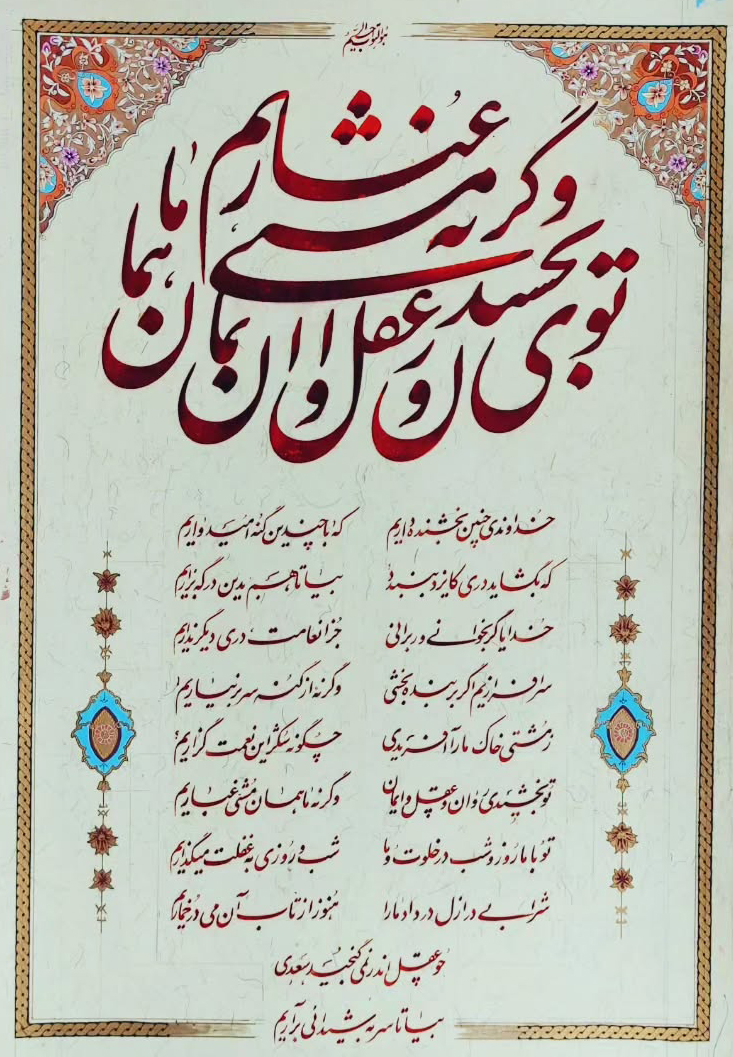 هو التواب الرحیم
تو بخشیدی روان و عقل و ایمان
وگرنه ما همان مشتی غباریم
خداوندی چنین بخشنده داریم که با چندین گنه امیدواریم
که بگشاید دری کایزد ببندد بیا تا هم بدین درگه بزاریم
خدایا گر بخوانی ور برانی جز انعامت دری دیگر نداریم
سرافرازیم اگر بر بنده بخشی وگرنه از گنه سر برنیاریم
ز مشتی خاک ما را آفریدی چگونه شکر این نعمت گزاریم
تو بخشیدی روان و عقل و ایمان وگرنه ما همان مشتی غباریم
تو با ما روز و شب در خلوت و ما شب و روزی به غفلت میگذاریم
شرابی در ازل در داد ما را هنوز از تاب آن می در خماریم
چو عقل اندر نمی گنجید سعدی
بیا تا سر به شیدائی برآریم